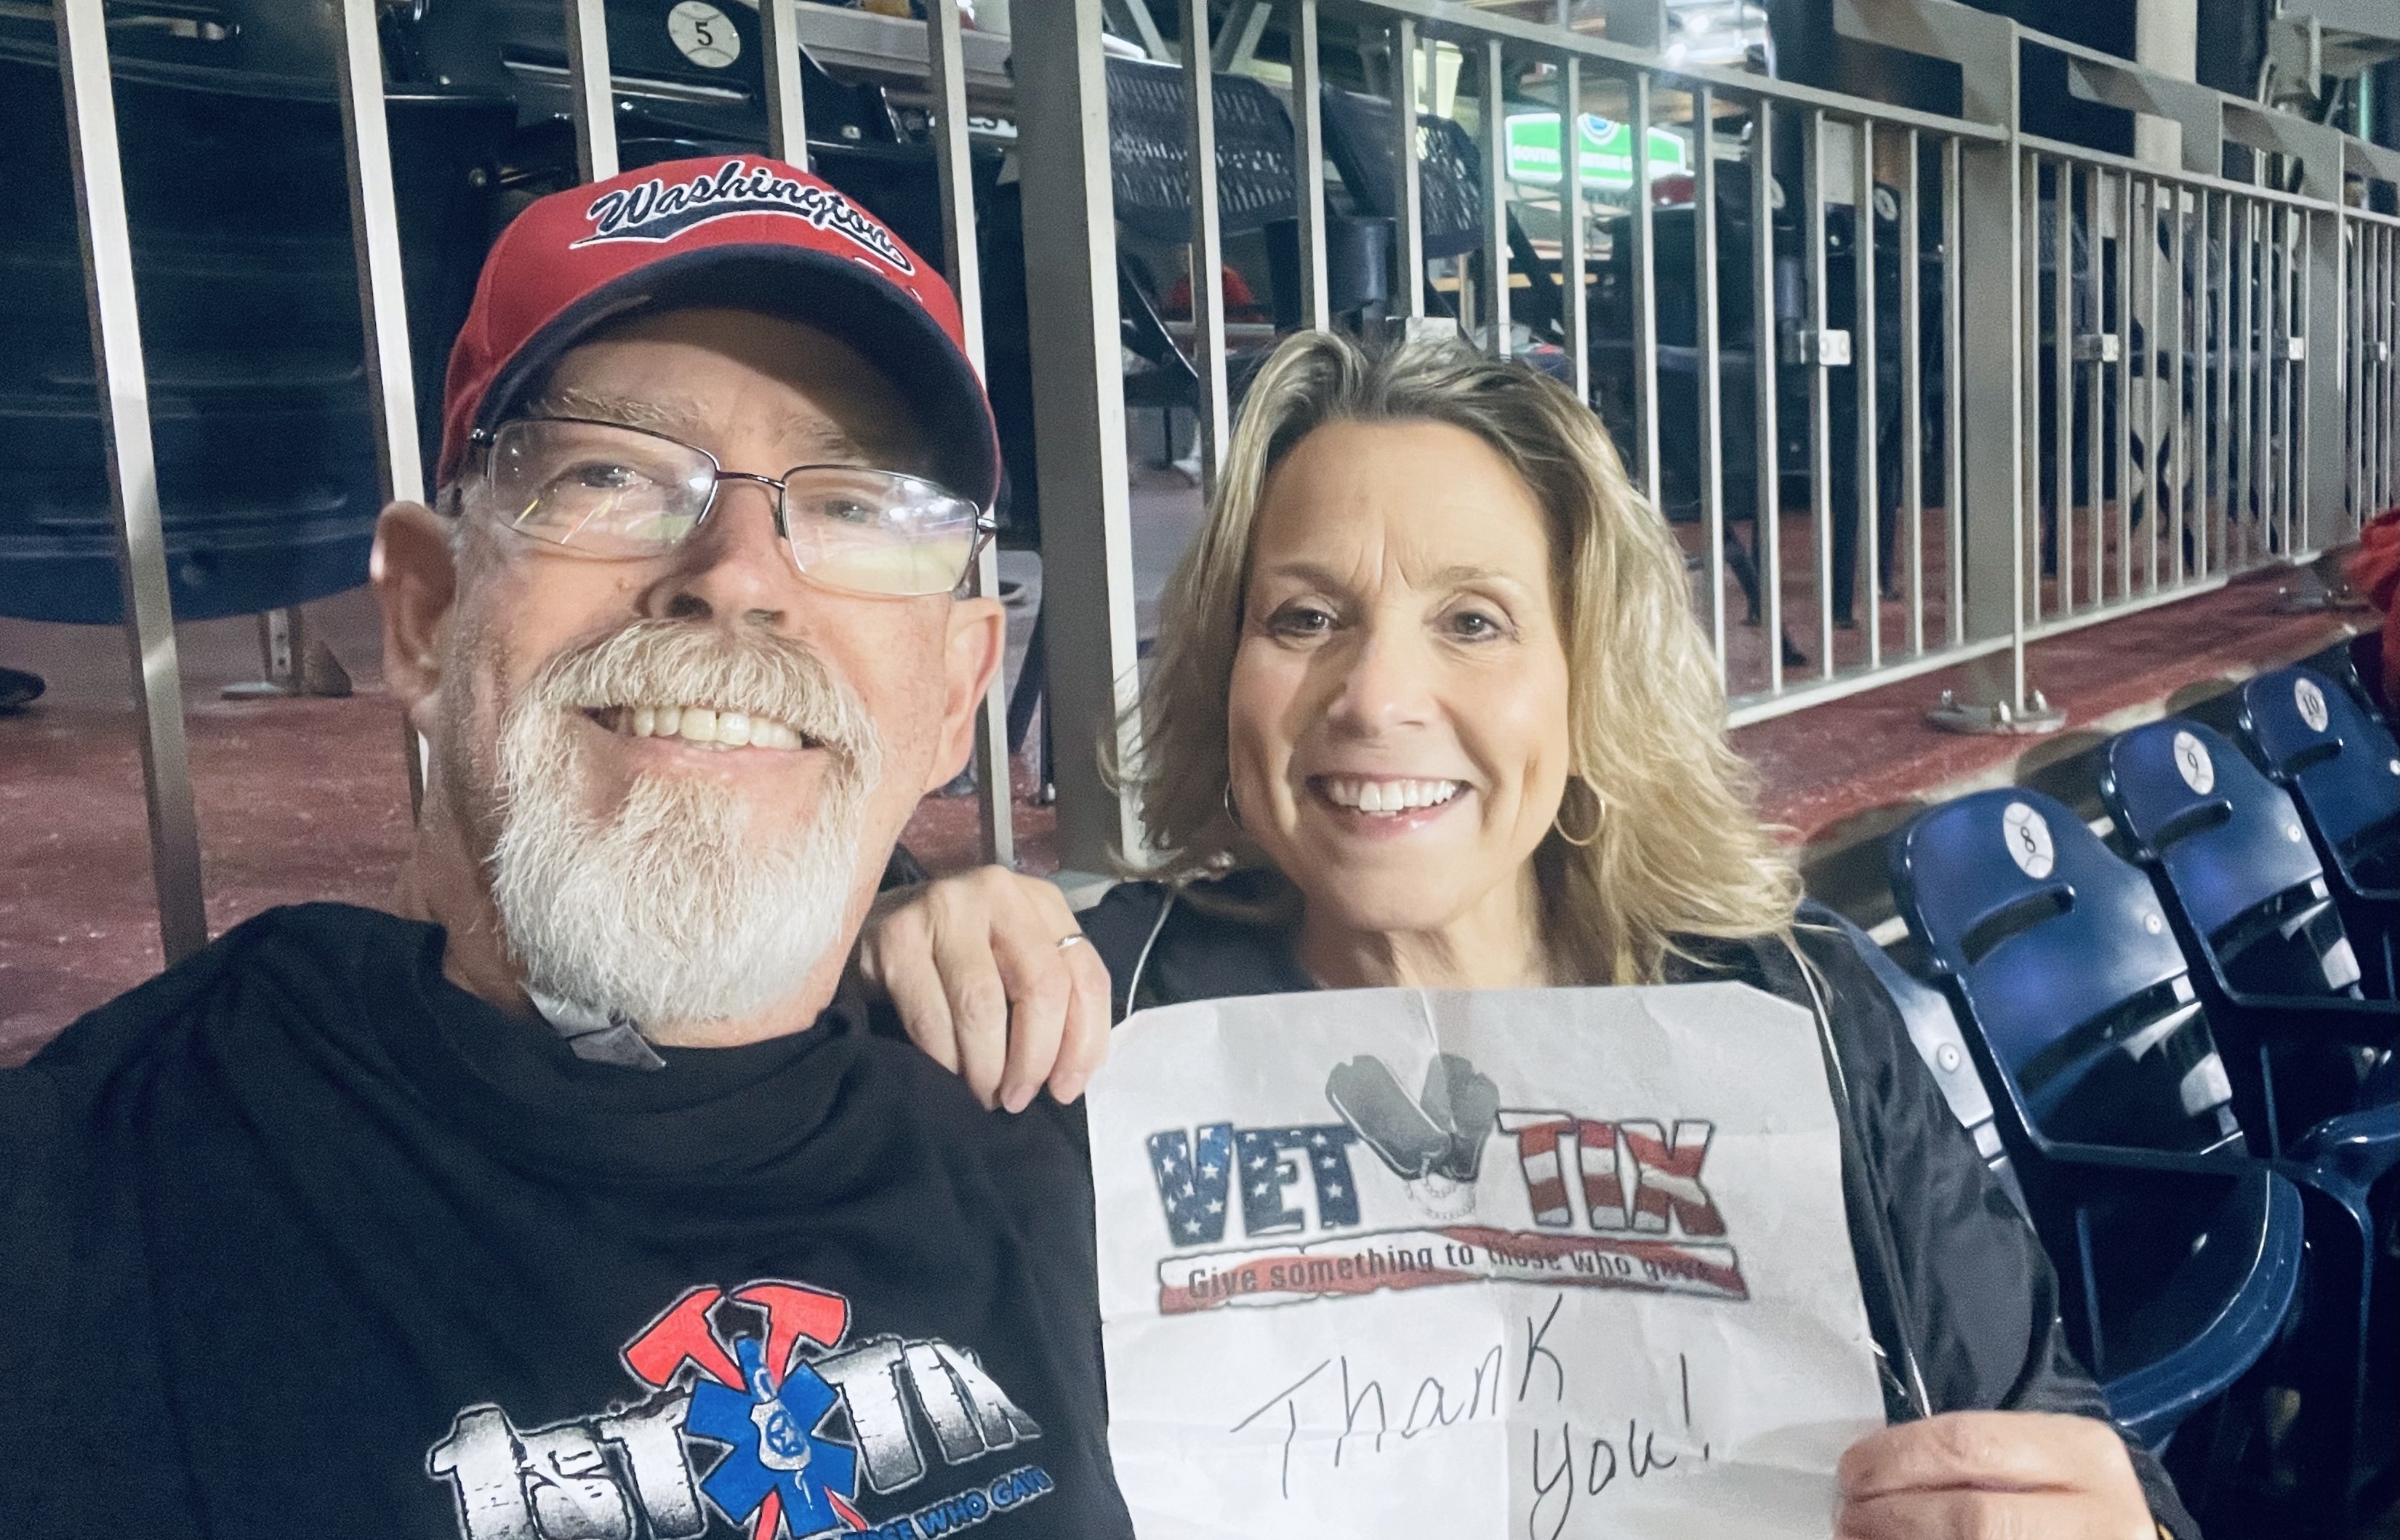 5
Washington
8
9
10
VET TIX
Give something to those who gave
Thank
You!
1ST TIX
THOSE WHO GAVE